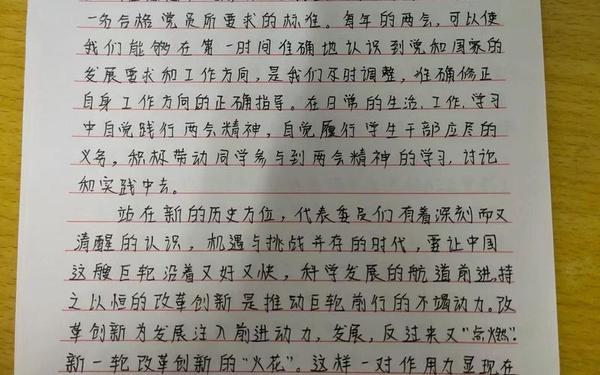 一名合格党员所要求的标准。每年的两会，可以使
我们能够在第一时间准确地认识到党和国家的
发展要求和工作方向，是我们及时调整，准确修正
自身工作方向的正确指导。在日常的生活、工作、学习
中自觉践行两会精神，自觉履行学生干部应尽的
义务，积极带动同学参与到两会精神的学习、讨论
和实践中去。
站在新的历史方位，代表委员们有着深刻而又
清醒的认识，机遇与挑战并存的时代，要让中国
这艘巨轮沿着又好又快，科学发展的航道前进，持
之以恒的改革创新是推动巨轮前行的不竭动力。改
革创新为发展注入前进动力，发展，反过来又“点燃”
新一轮改革创新的“火花”。这样一对作用力显现在